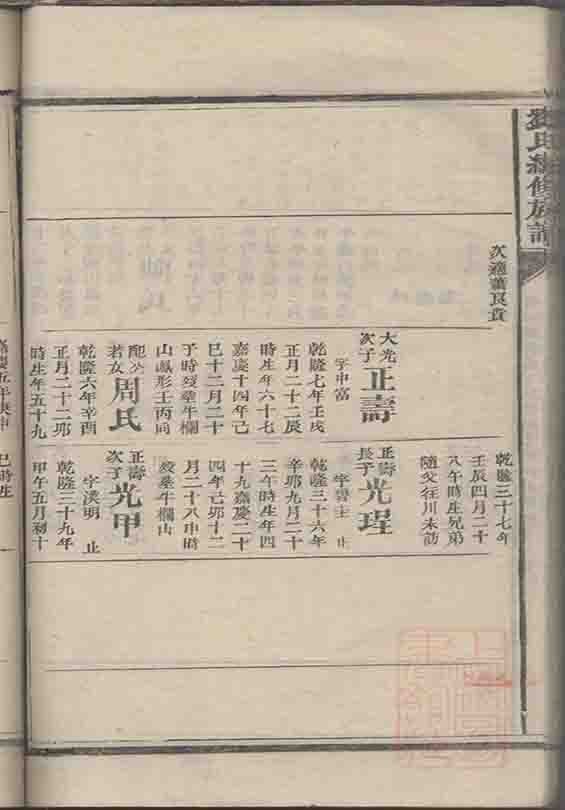 氏續修族譜
次適蕭良貴
大光次子正壽
字申富
乾隆七年壬戌
正月二十二辰
時生年六十七
嘉慶十四年己
巳十二月二十
子時歿葬牛欄
山鳳形壬丙向
配公若女周氏
乾隆六年辛酉
正月二十二卯
時生年五十九
乾隆三十七年
壬辰四月二十
八午時生兄弟
隨父往川未訪
正壽長子光珵
字 止
乾隆三十六年
辛卯九月二十
三午時生年四
十九嘉慶二十
四年己卯十二
月二十八申時
歿葬牛欄山
正壽次子光甲
字漢明 止
乾隆三十九年
甲午五月初十
嘉慶五年庚申
巳時生
上圖書館藏